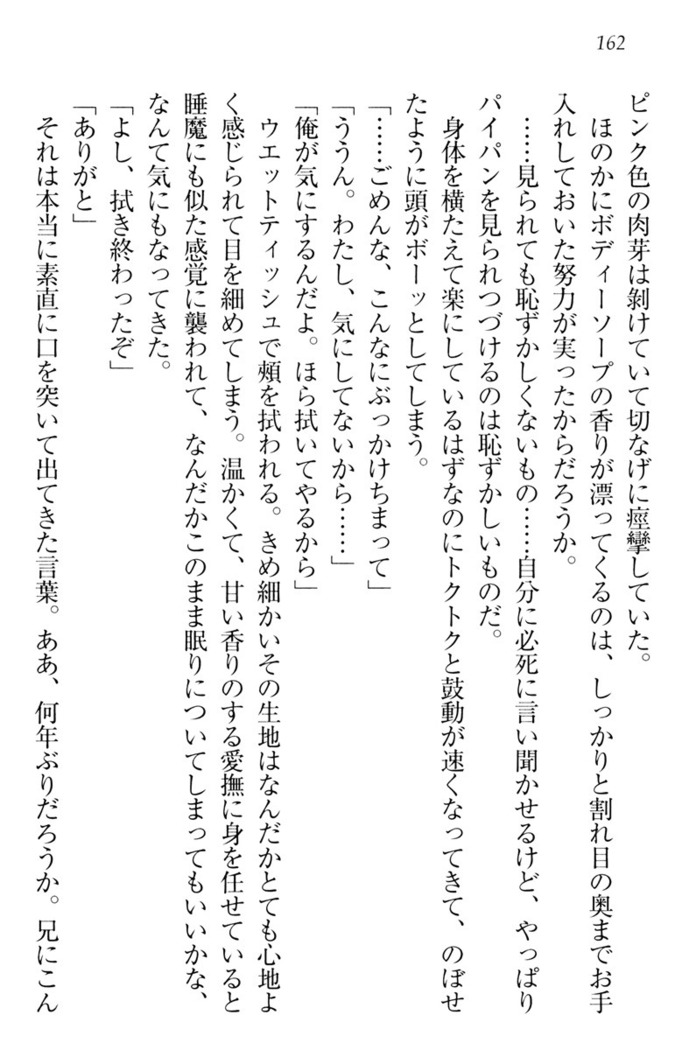 162
ピンク色の肉芽は剝けていて切なげに痙攣していた。
ほのかにボディーソープの香りが漂ってくるのは、しっかりと割れ目の奥までお手
入れしておいた努力が実ったからだろうか。
……見られても恥ずかしくないもの……自分に必死に言い聞かせるけど、やっぱり
パイパンを見られつづけるのは恥ずかしいものだ。
身体を横たえて楽にしているはずなのにトクトクと鼓動が速くなってきて、のぼせ
たように頭がボーッとしてしまう。
「……ごめんな、こんなにぶっかけちまって」
「ううん。わたし、気にしてないから……」
「俺が気にするんだよ。ほら拭いてやるから」
ウエットティッシュで頰を拭われる。きめ細かいその生地はなんだかとても心地よ
く感じられて目を細めてしまう。温かくて、甘い香りのする愛撫に身を任せていると
睡魔にも似た感覚に襲われて、なんだかこのまま眠りについてしまってもいいかな、
なんて気にもなってきた。
「よし、拭き終わったぞ」
「ありがと」
それは本当に素直に口を突いて出てきた言葉。ああ、何年ぶりだろうか。兄にこん